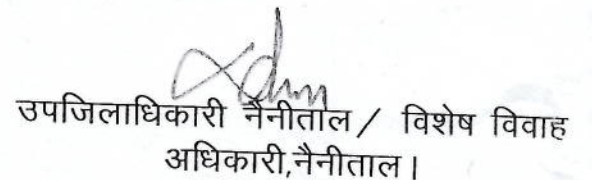 उपजिलाधिकारी नैनीताल / विशेष विवाह
अधिकारी,नैनीताल।